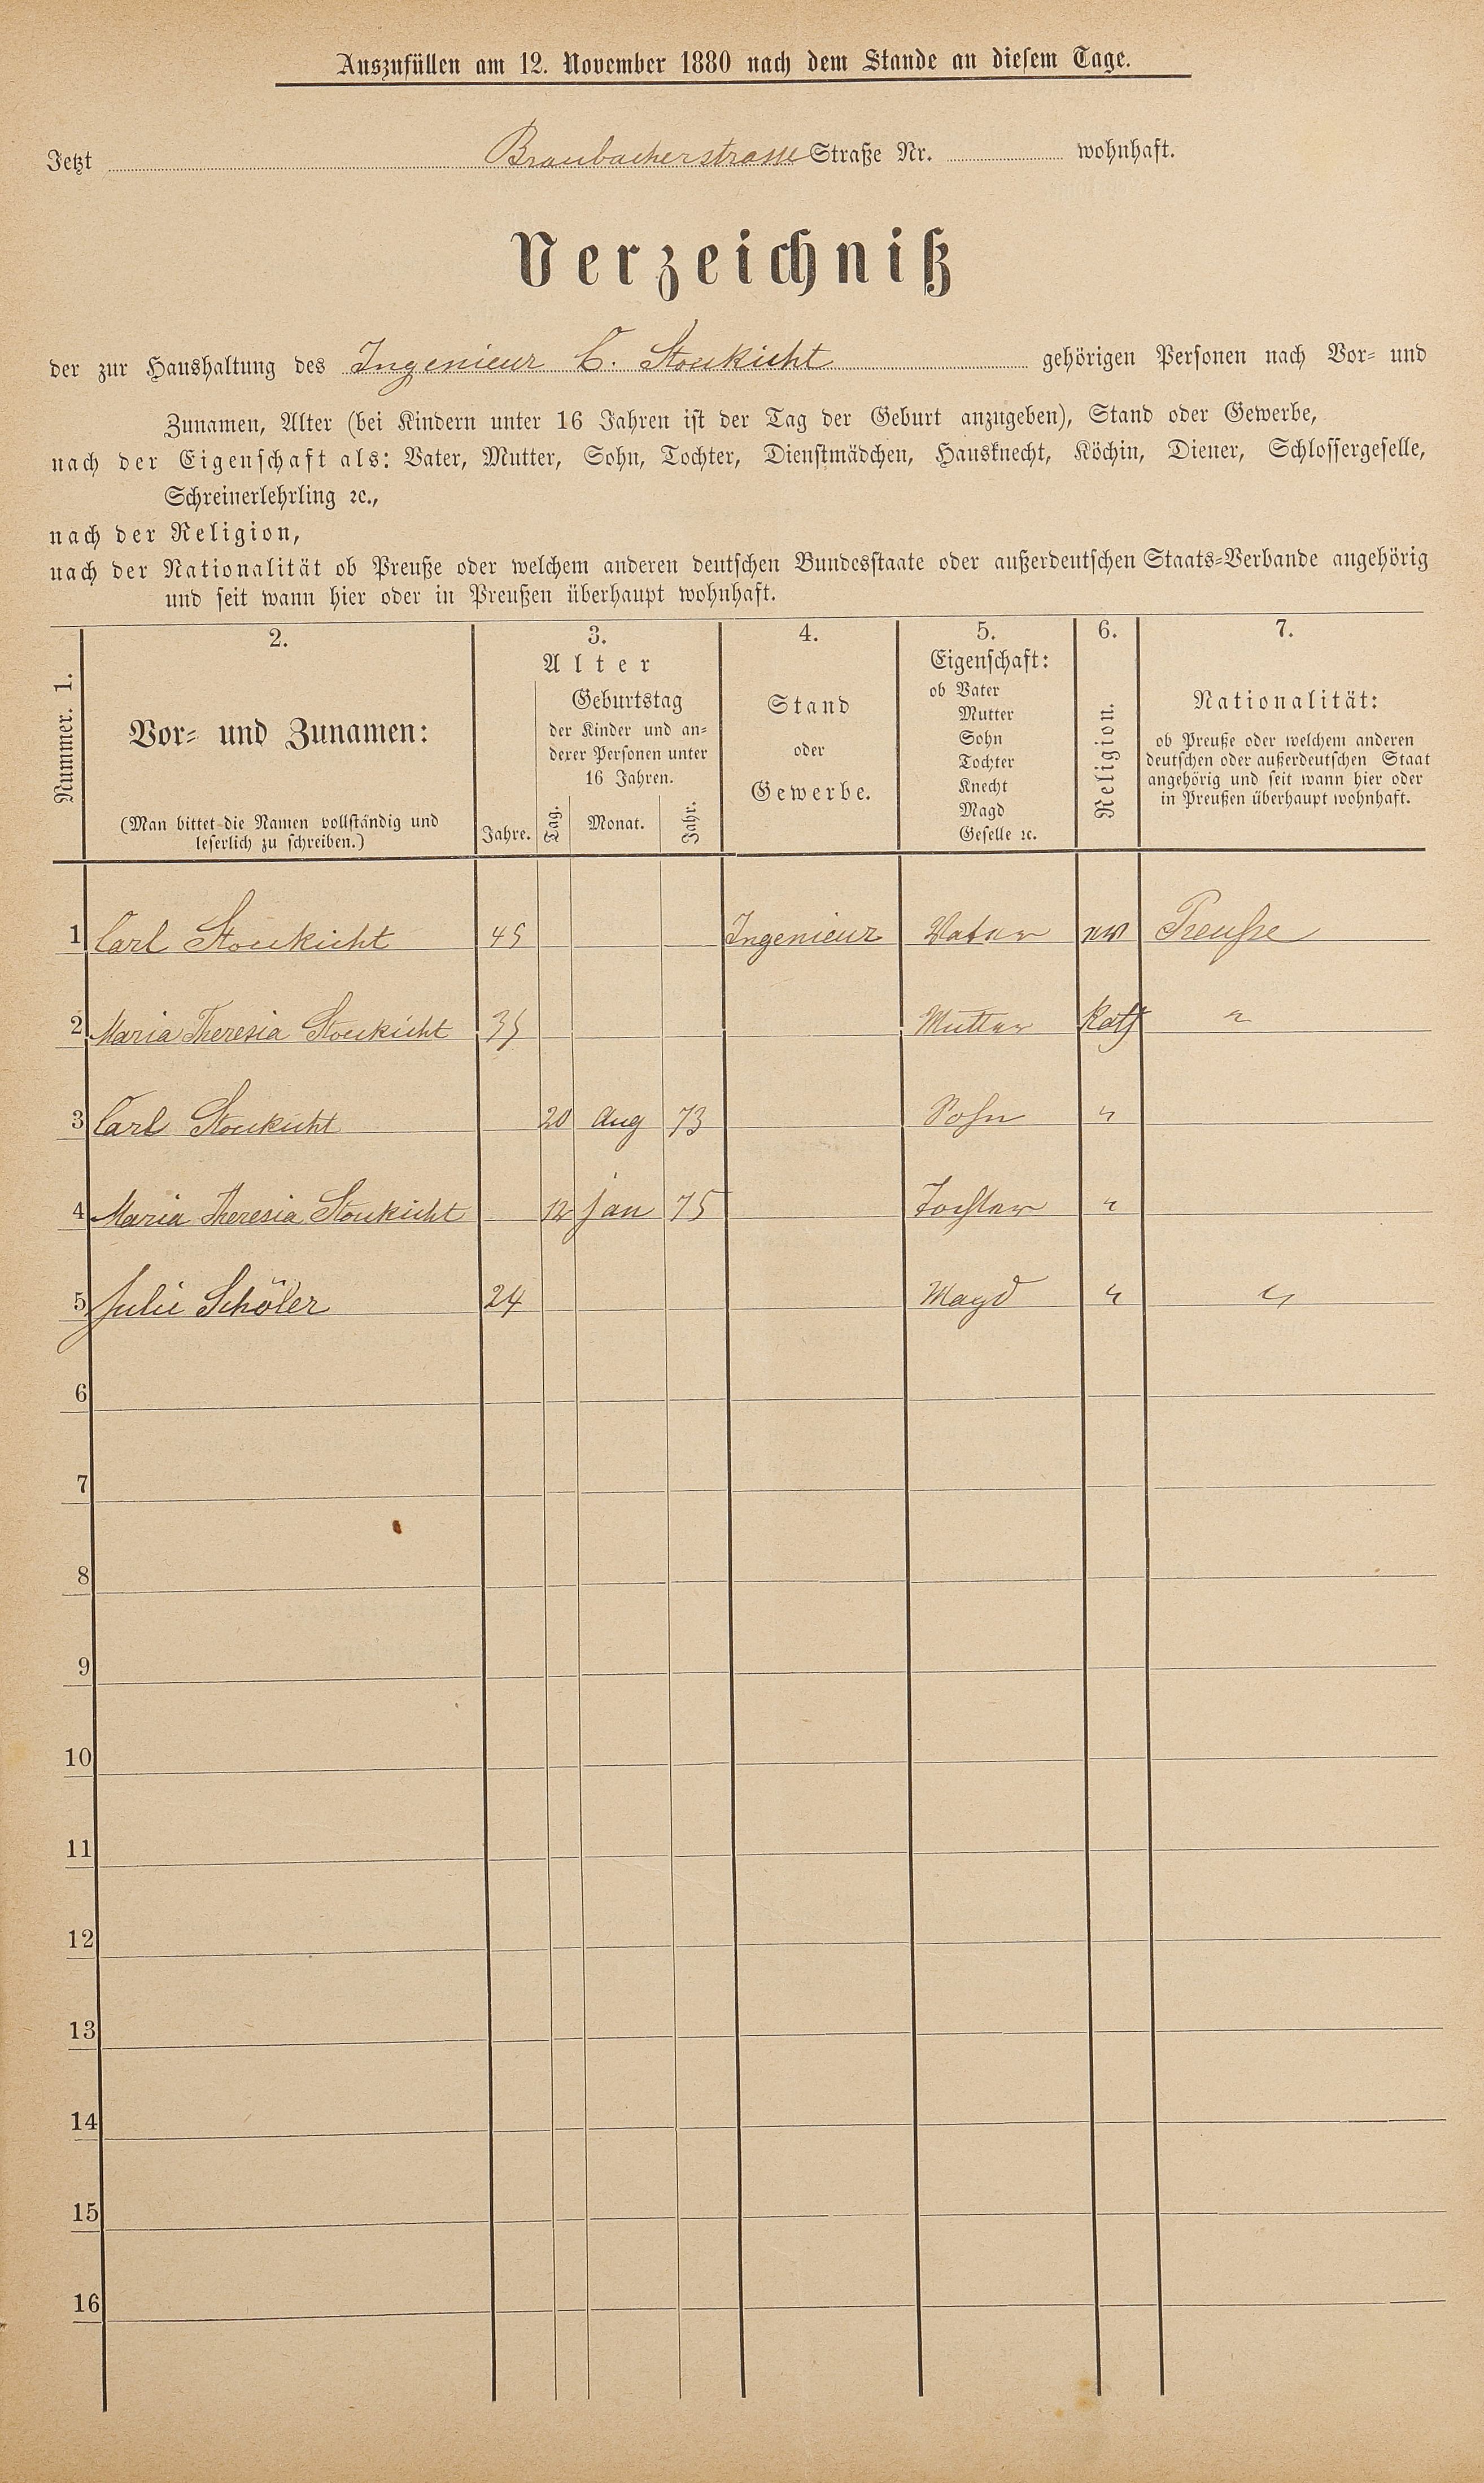 Auszufüllen am 12. November 1880 nach dem Stande an diesem Tage.
Jetzt Braubacherstrasse Straße Nr. wohnhaft.
Verzeichniß
der zur Haushaltung des Ingenieur C. Stoukicht gehörigen Personen nach Vor- und
Zunamen, Alter (bei Kindern unter 16 Jahren ist der Tag der Geburt anzugeben), Stand oder Gewerbe,
nach der Eigenschaft als: Vater, Mutter, Sohn, Tochter, Dienstmädchen, Hausknecht, Köchin, Diener, Schlossergeselle,
Schreinerlehrling ꝛc.,
nach der Religion,
nach der Nationalität ob Preuße oder welchem anderen deutschen Bundesstaate oder außerdeutschen Staats-Verbande angehörig
und seit wann hier oder in Preußen überhaupt wohnhaft.
Nummer. 1.
2.
Vor- und Zunamen:
(Man bittet die Namen vollständig und
leserlich zu schreiben.)
3.
Alter
Jahre.
Geburtstag
der Kinder und an-
derer Personen unter
16 Jahren.
Tag. Monat. Jahr.
4.
Stand
oder
Gewerbe.
5.
Eigenschaft:
ob Vater
Mutter
Sohn
Tochter
Knecht
Magd
Geselle ꝛc.
6.
Religion.
7.
Nationalität:
ob Preuße oder welchem anderen
deutschen oder außerdeutschen Staat
angehörig und seit wann hier oder
in Preußen überhaupt wohnhaft.
1 Carl Stoukicht 45 Ingenieur Vater ev Preuße
2 Maria Theresia Stoukicht 35 Mutter Kath "
3 Carl Stoukicht 20 Aug 73 Sohn "
4 Maria Theresia Stoukicht 12 Jan 75 Tochter "
5 Julie Schöler 24 Magd " "
6
7
8
9
10
11
12
13
14
15
16